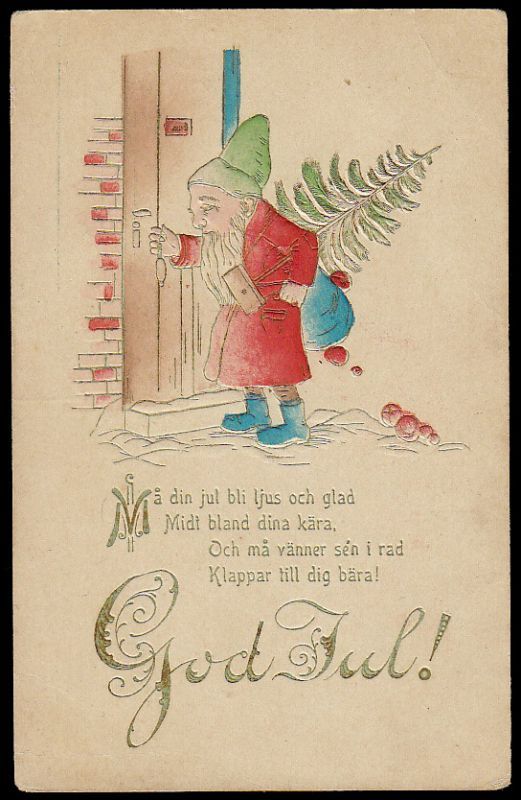 Må din jul bli ljus och glad
Midt bland dina kära,
Och må vänner sén i rad
Klappar till dig bära!
God Jul!